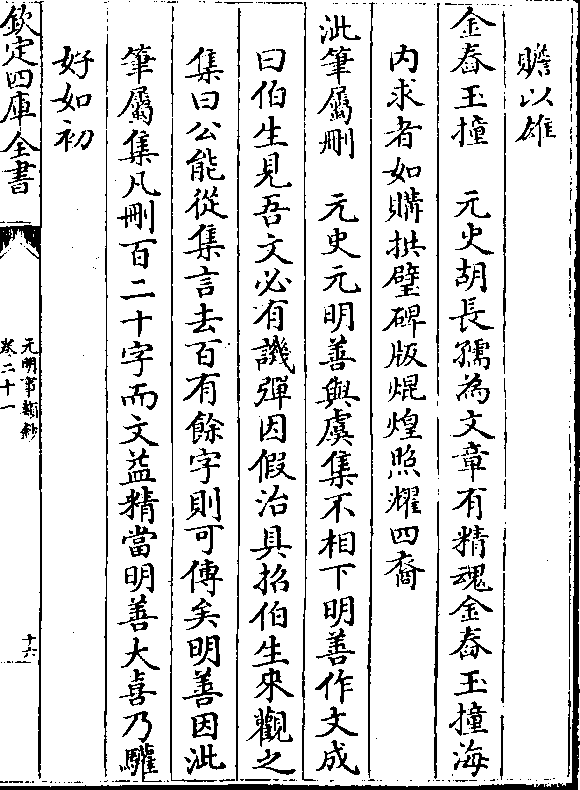 贍以雄
金舂玉撞　元史胡長孺為文章有精魂金舂玉撞海
内求者如購拱璧碑版焜煌照耀四裔
泚筆屬刪　元史元明善與虞集不相下明善作文成
曰伯生見吾文必有譏彈因假治具招伯生來觀之
集曰公能從集言去百有餘字則可傳矣明善因泚
筆屬集凡刪百二十字而文益精當明善大喜乃驩
好如初
欽定四庫全書
元明事類鈔
卷二十一
十六